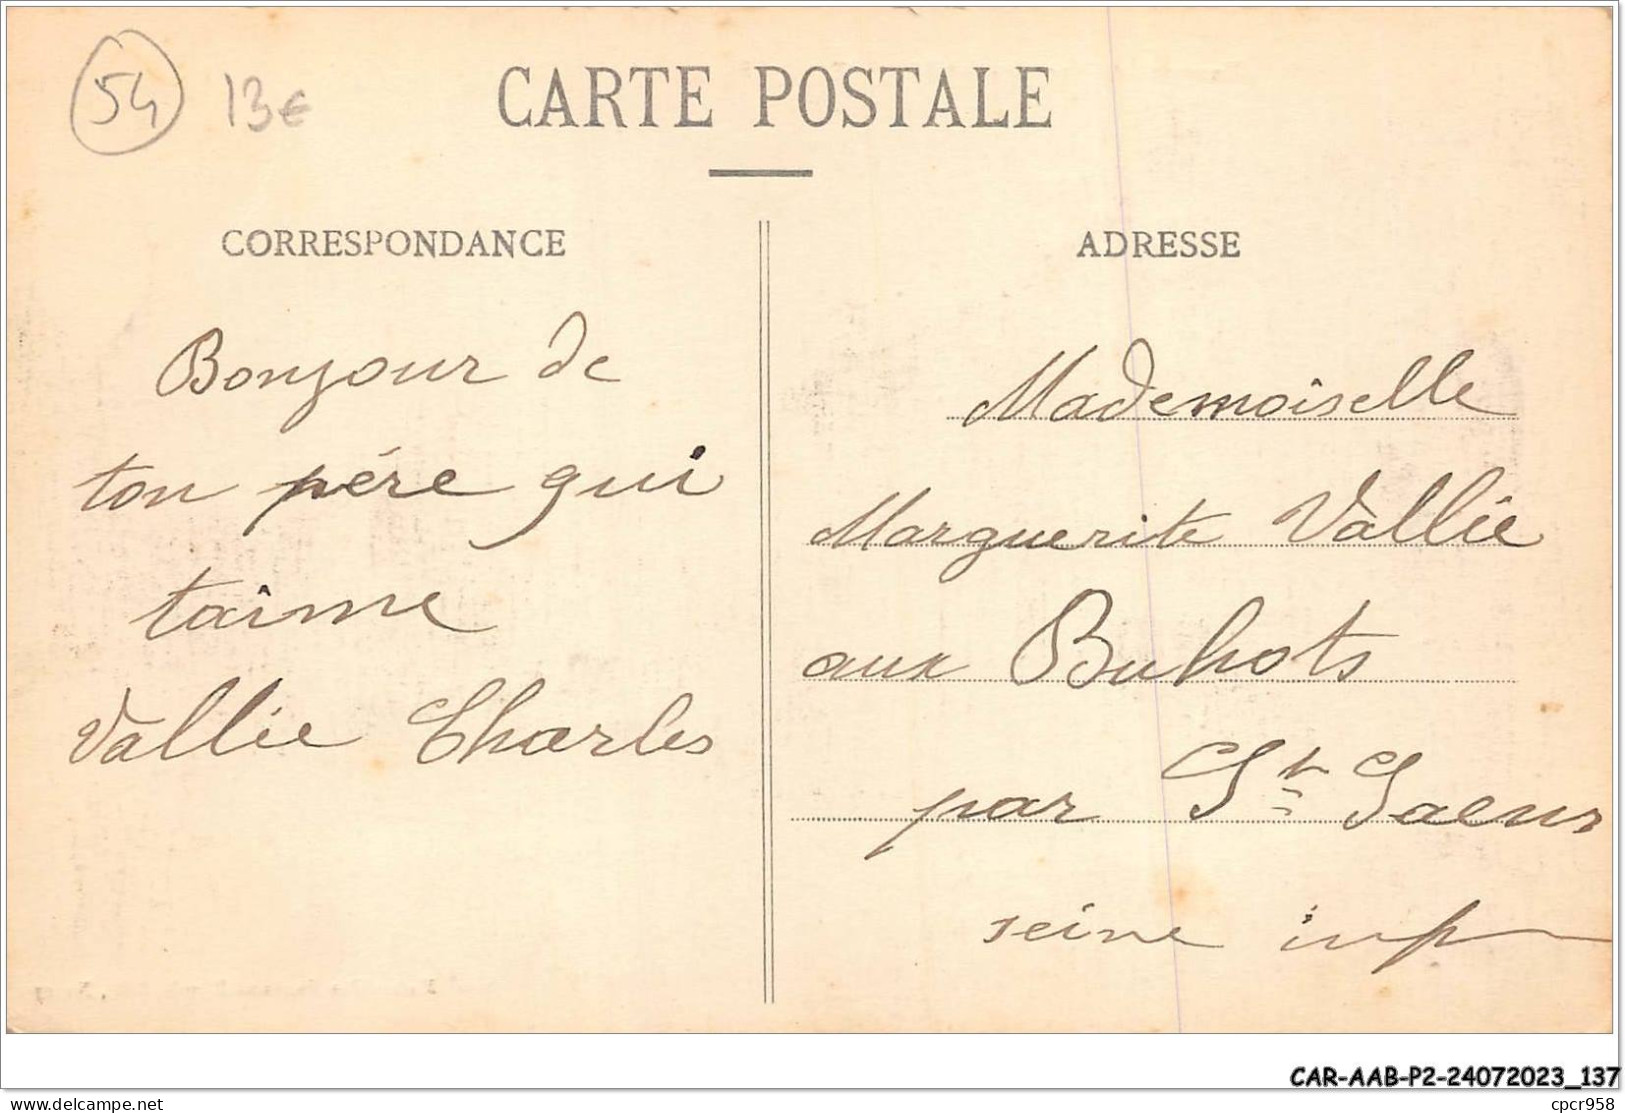 54 13€
CARTE POSTALE
CORRESPONDANCE
Bonjour de
ton père qui
taime
Vallie Charles
ADRESSE
Mademoiselle
Marguerite Vallie
aux Buhots
par St Saens
seine inf
CAR-AAB-P2-24072023_137
www.delcampe.net
cpcr958